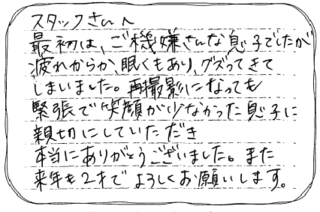 スタッフさんへ
最初は、ご機嫌さんな息子でしたが
疲れからか、眠くもあり、グズってきて
しまいました。再撮影になっても
緊張で笑顔が少なかった息子に
親切にしていただき
本当にありがとうございました。また
来年も2才でよろしくお願いします。